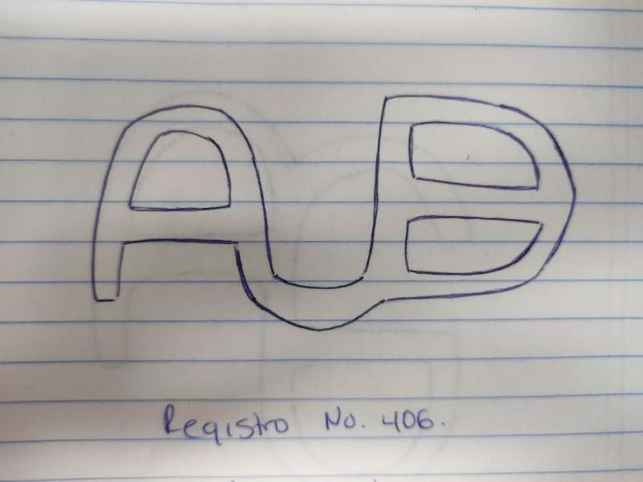 AB
Registro No. 406.